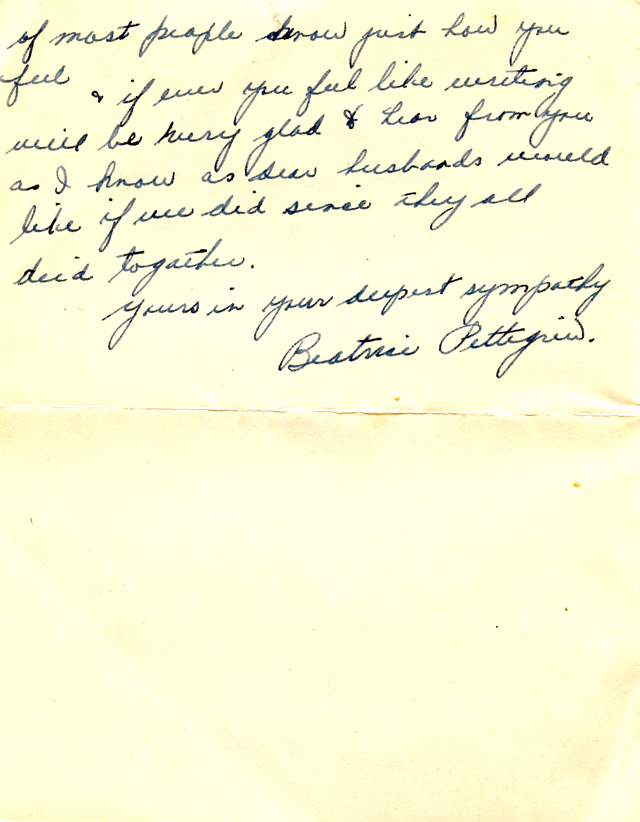 of most people know just how you
feel & if ever you feel like writing
will be very glad & hear from you
as I know as dear husbands would
like if we did since they all
deid togather.
yours in your deepest sympathy
Beatrice Pettegrew.